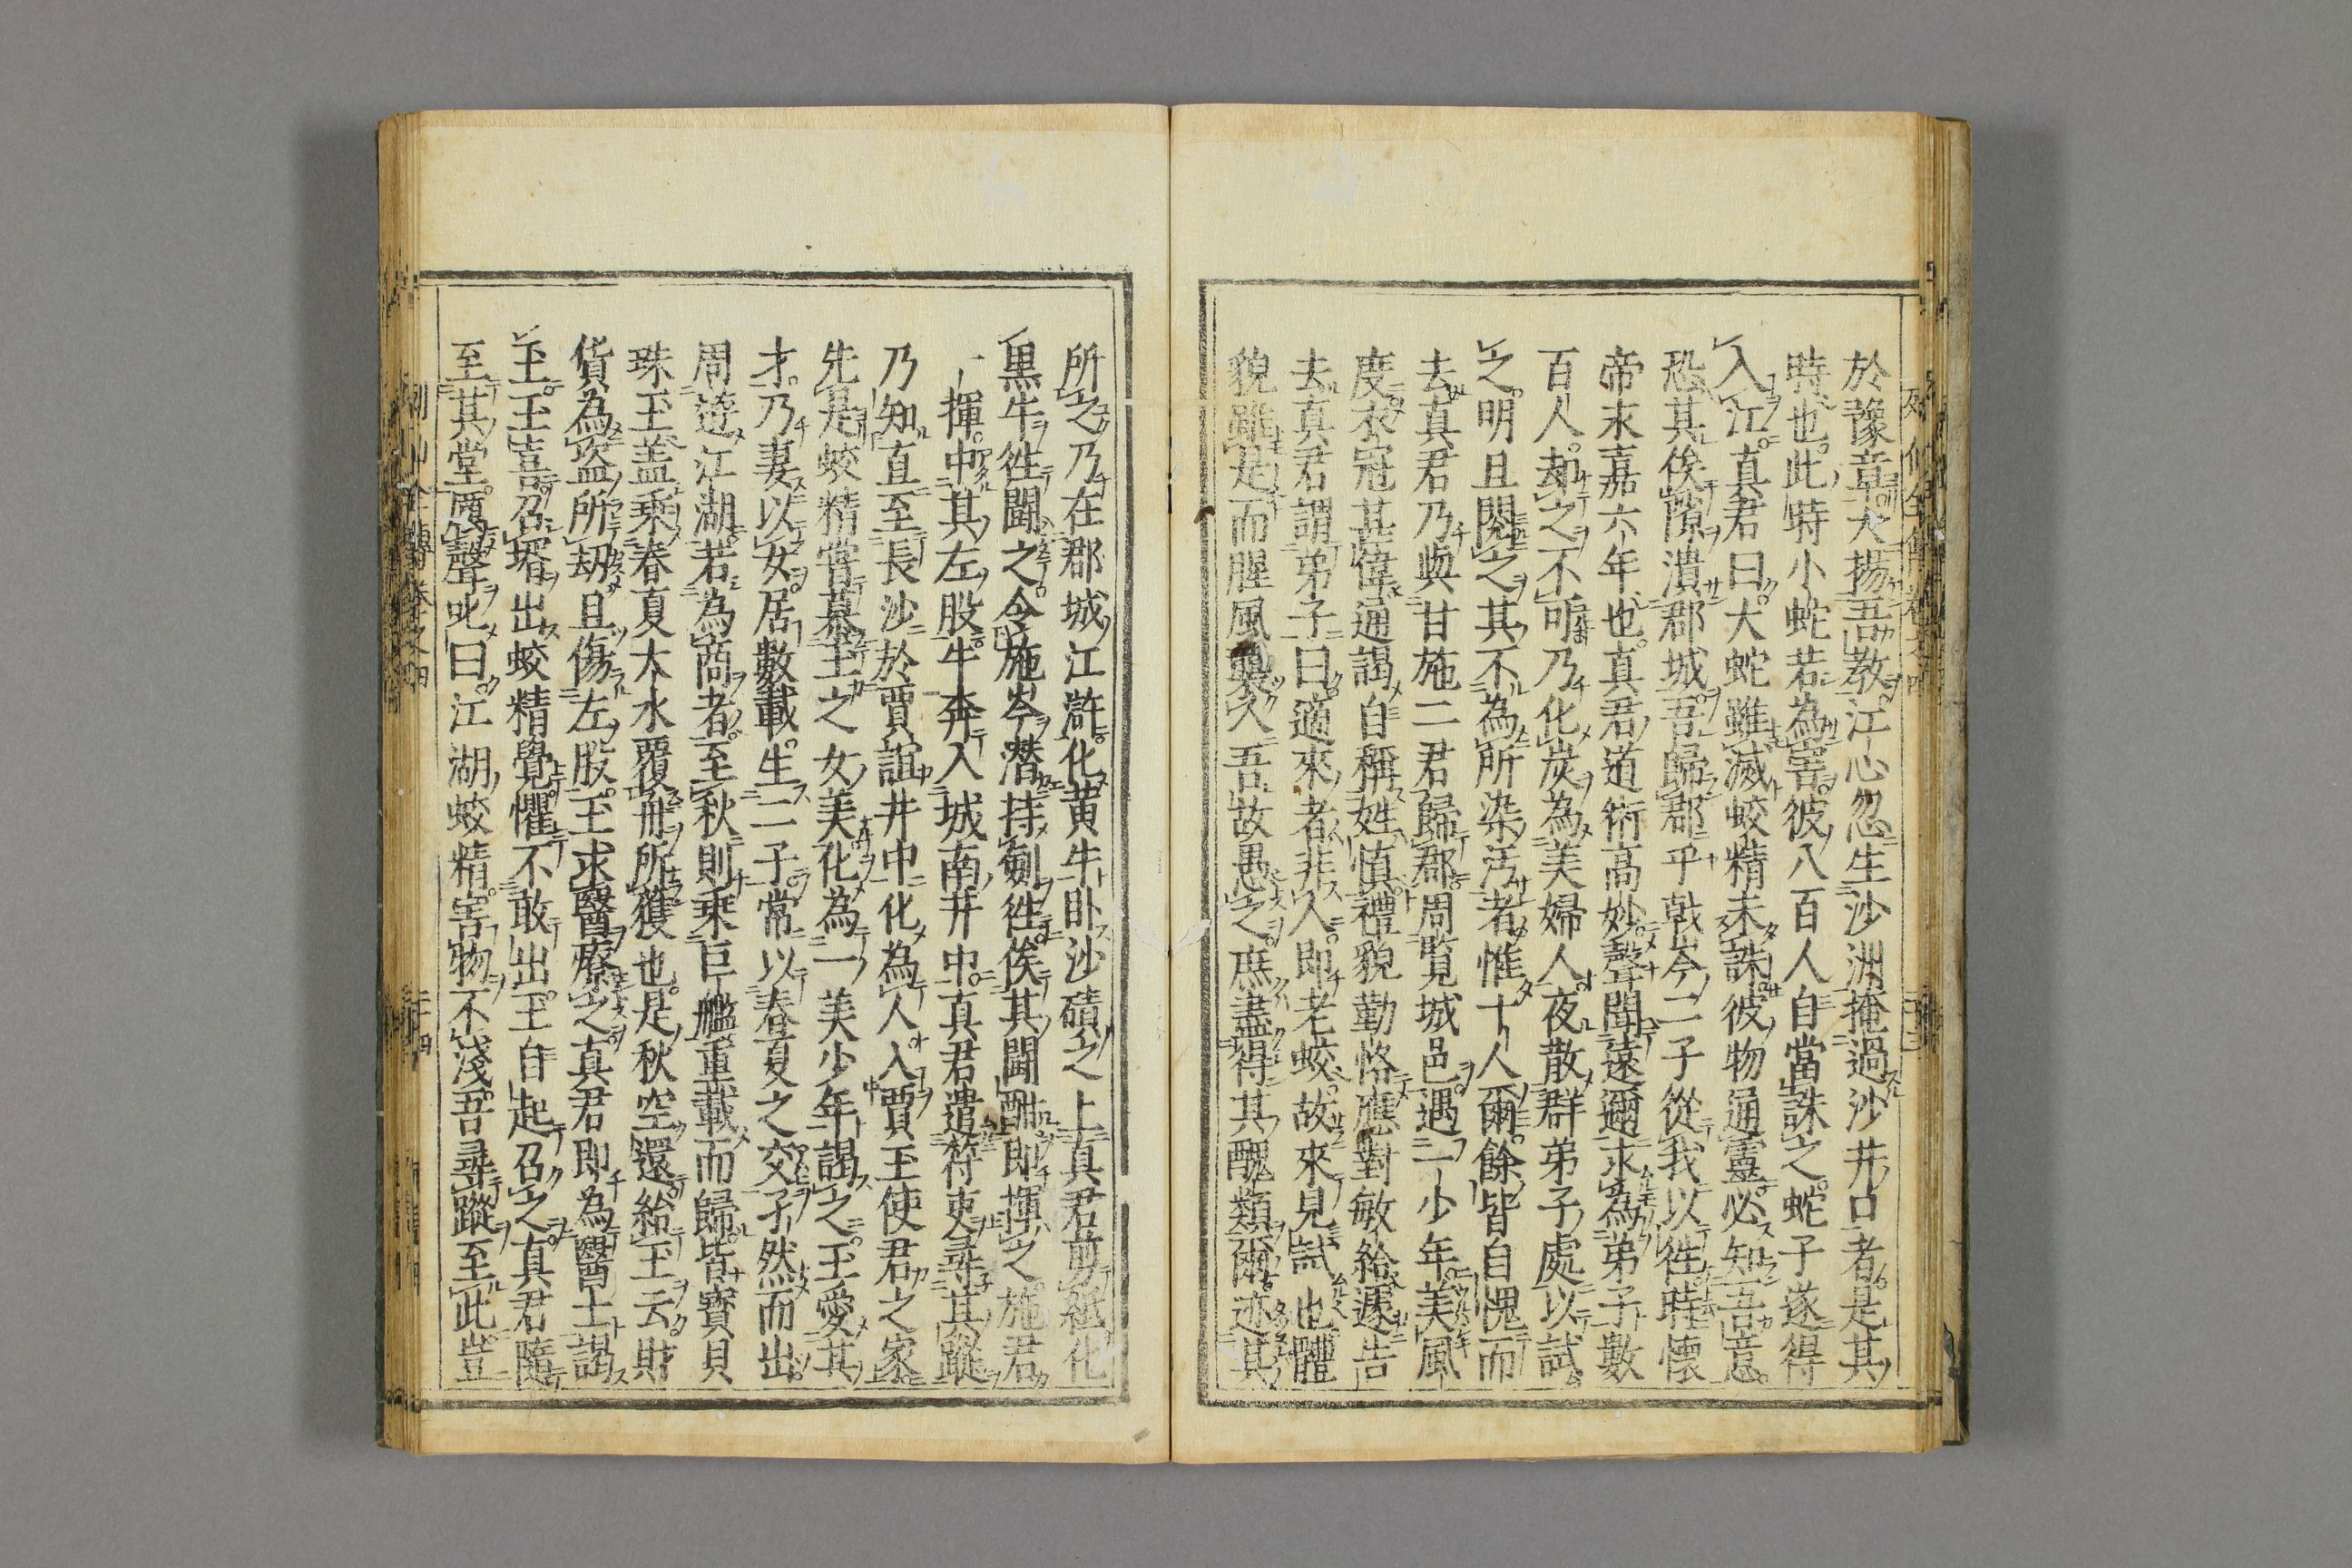 於豫章大揚吾教江心忽生沙洲掩過沙井口者是其
時也此時小蛇若為害彼八百人自當誅之蛇子遂得
入江真君曰大蛇雖滅蛟精未誅彼物通靈必知吾意
恐其俟隙潰郡城吾歸郡乎戟岑二子從我以徃時懷
帝末嘉六年也真君道術高妙聲聞遠邇求為弟子數
百人却之不可乃化炭為美婦人夜散群弟子處以試
之明旦閱之其不為所染汚者惟十人爾餘皆自愧而
去真君乃與甘施二君歸郡周覧城邑遇一少年美風
度衣冠甚偉通謁自稱姓慎禮貌勤恪應對敏給遽告
去真君謂弟子曰適來者非人即老蛟故來見試也體
貌雖是而腥風襲人吾故愚之庶盡得其醜類爾迹其
所之乃在郡城江滸化黃牛卧沙磧之上真君剪紙化
黒牛徃闘之令施岑潜持劔徃俟其闘酣即揮之施君
一揮中其左股牛奔入城南井中真君遣符吏尋其蹤
乃知直至長沙於賈誼井中化為人入賈玉使君之家
先是蛟精嘗慕玉之女美化為一美少年謁之玉愛其
才乃妻以女居數載生二子常以春夏之交孑然而出
周遊江湖若為商者至秋則乘巨艦重載而歸皆寳貝
珠玉盖乘春夏大水覆舟所獲也是秋空還給玉云財
貨為盗所刼且傷左股玉求醫療之真君即為醫士謁
玉玉喜召壻出蛟精覺懼不敢出玉自起召之真君隨
至其堂厲聲叱曰江湖蛟精害物不淺吾尋蹤至此豈